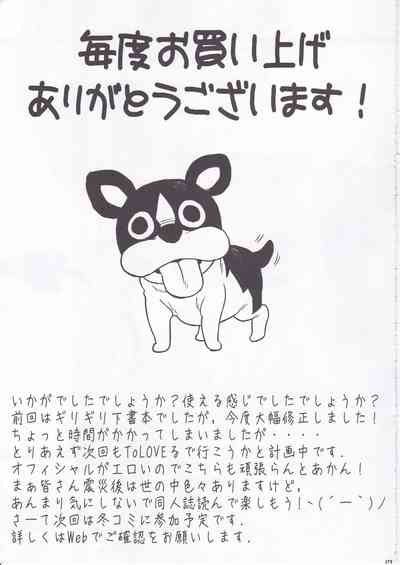 毎度お買い上げ
ありがとうございます！
いかがでしたでしょうか？使える感じでしたでしょうか？
前回はギリギリ下書本でしたが，今度大幅修正しました！
ちょっと時間がかかってしまいましたが・・・・
とりあえず次回もToLOVEるで行こうかと計画中です．
オフィシャルがエロいのでこちらも頑張らんとあかん！
まぁ皆さん震災後は世の中色々ありますけど，
あんまり気にしないで同人誌読んで楽しもう！ヽ(´ー`)ノ
さーて次回は冬コミに参加予定です．
詳しくはWebでご確認をお願いします．